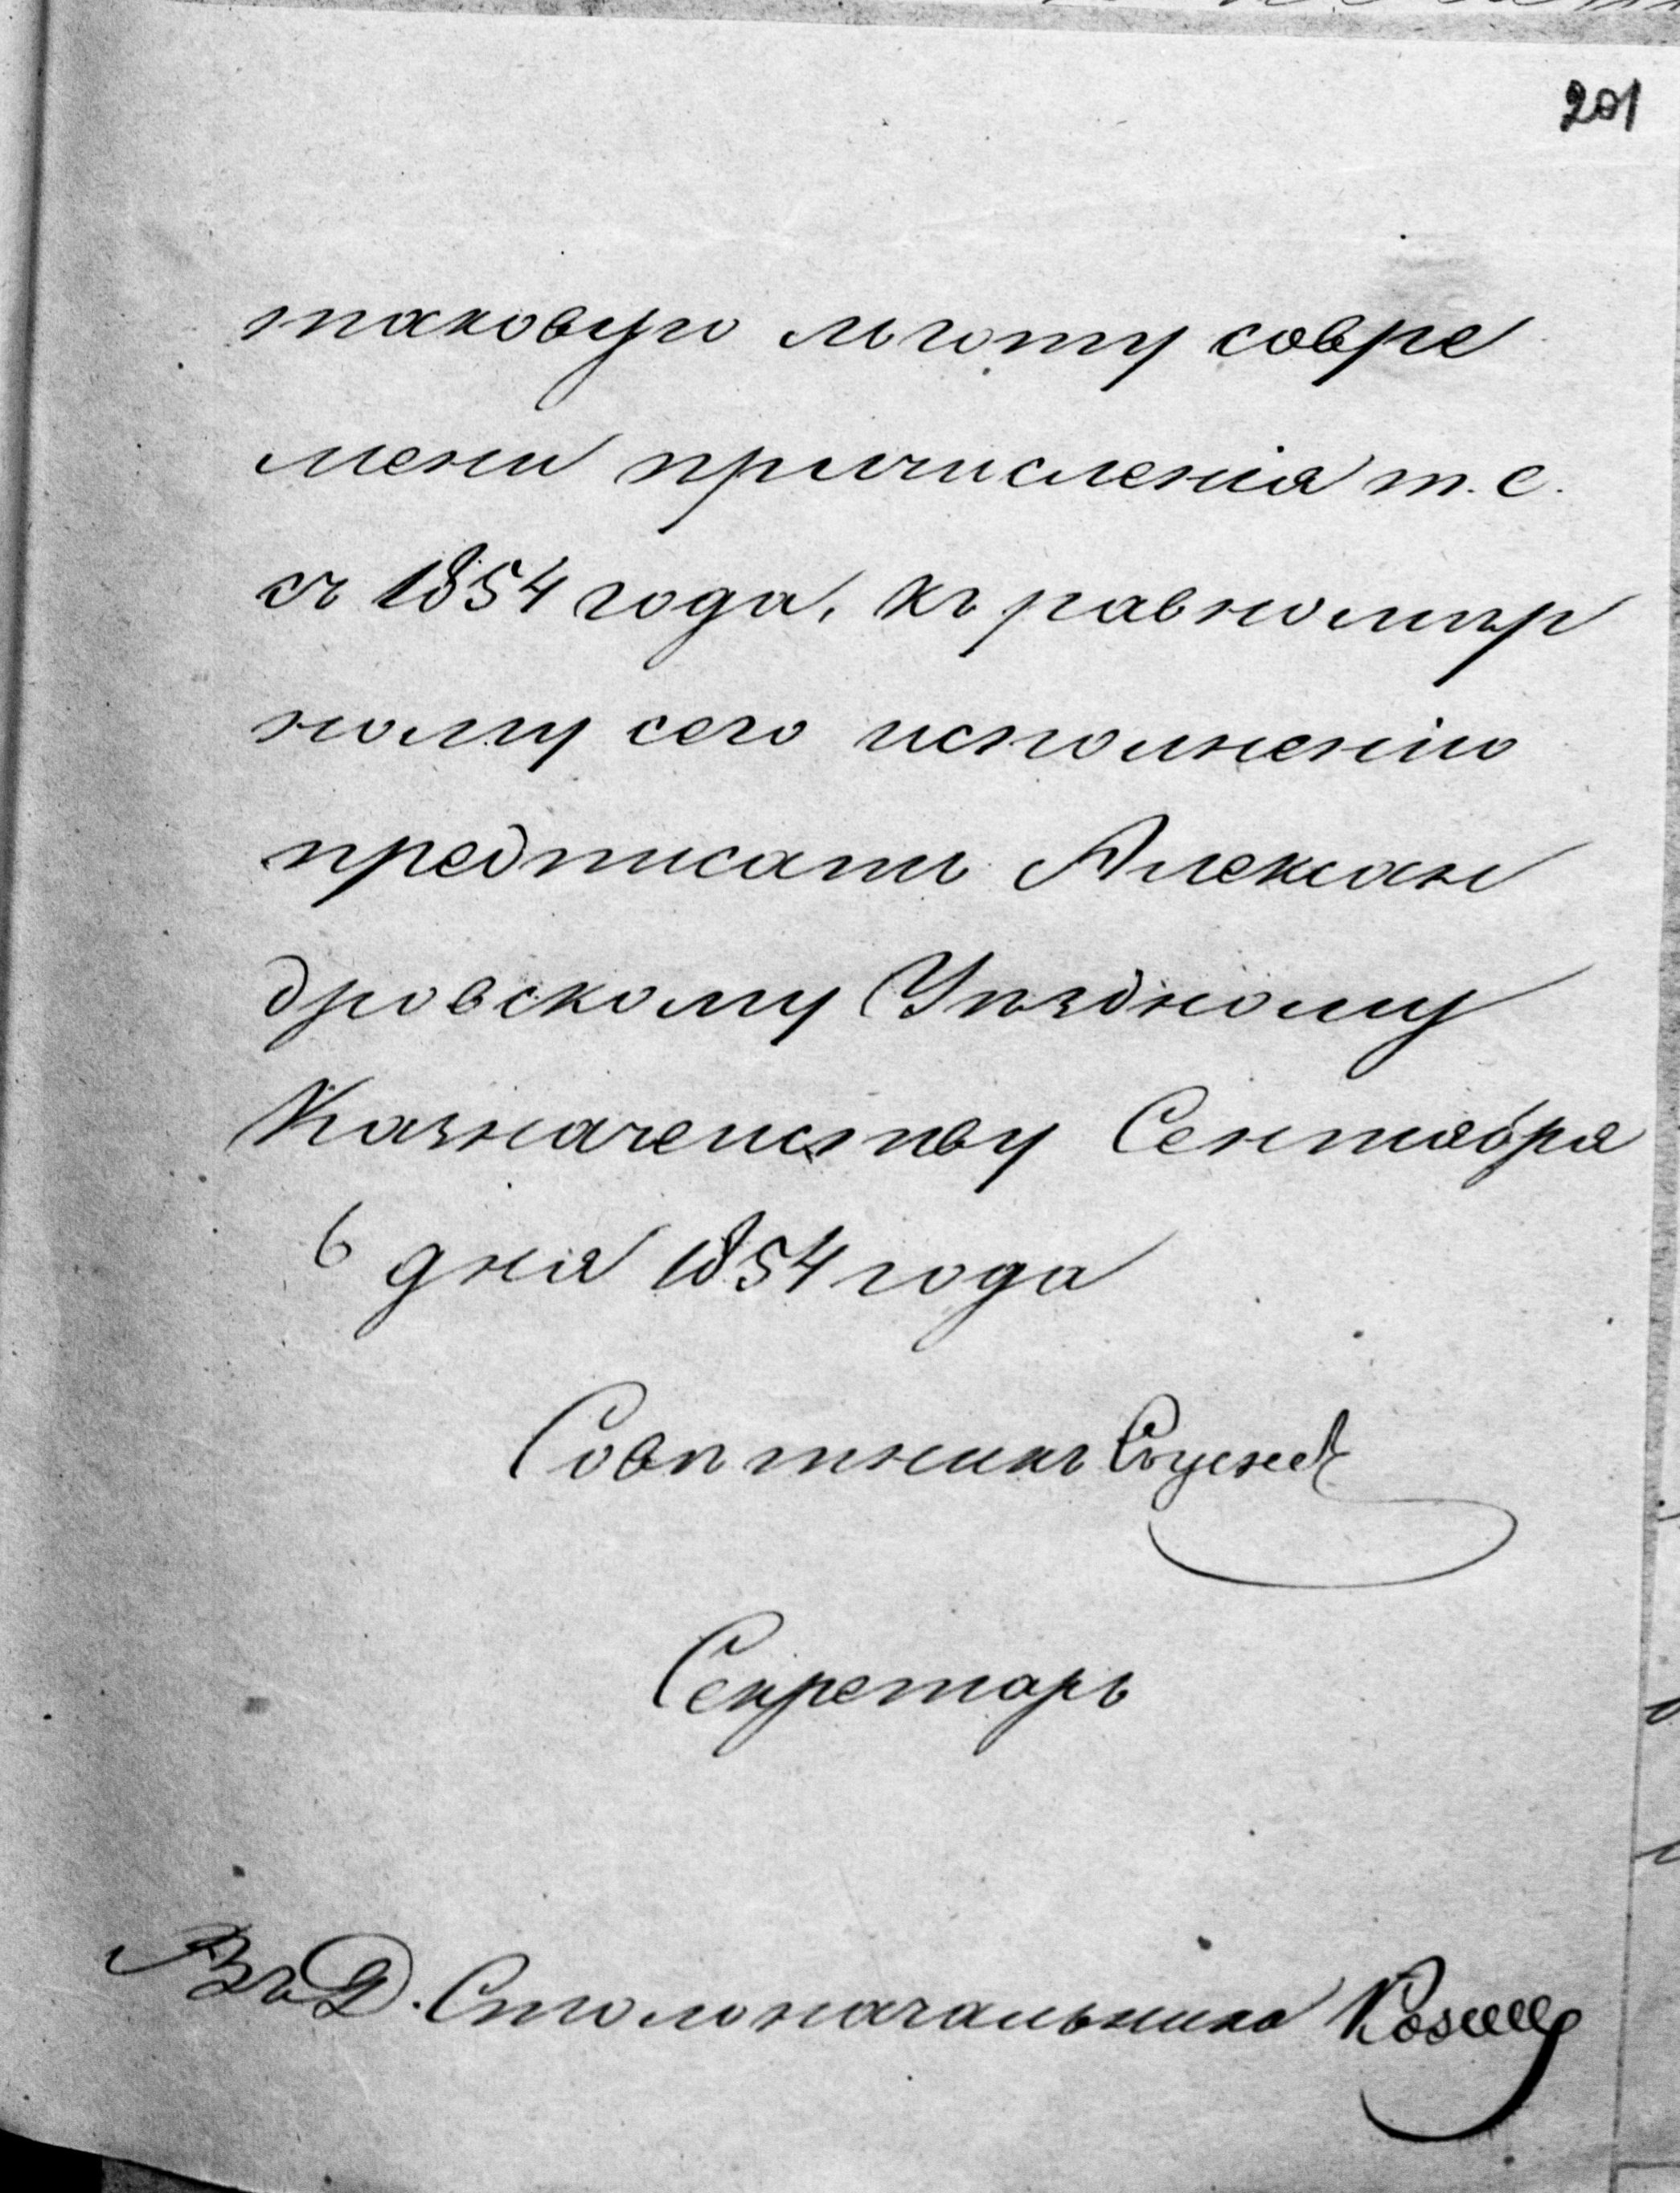 201
таковую льготу совре
мени причисленія т. е.
съ 1854 года, къ равномѣр
ному сего исполненію
предписать Алексан
дровскому Уѣздному
Казначейству Сентября
6 дня 1854 года
Совѣтникъ
Секретарь
Въ Д. Столоначальника